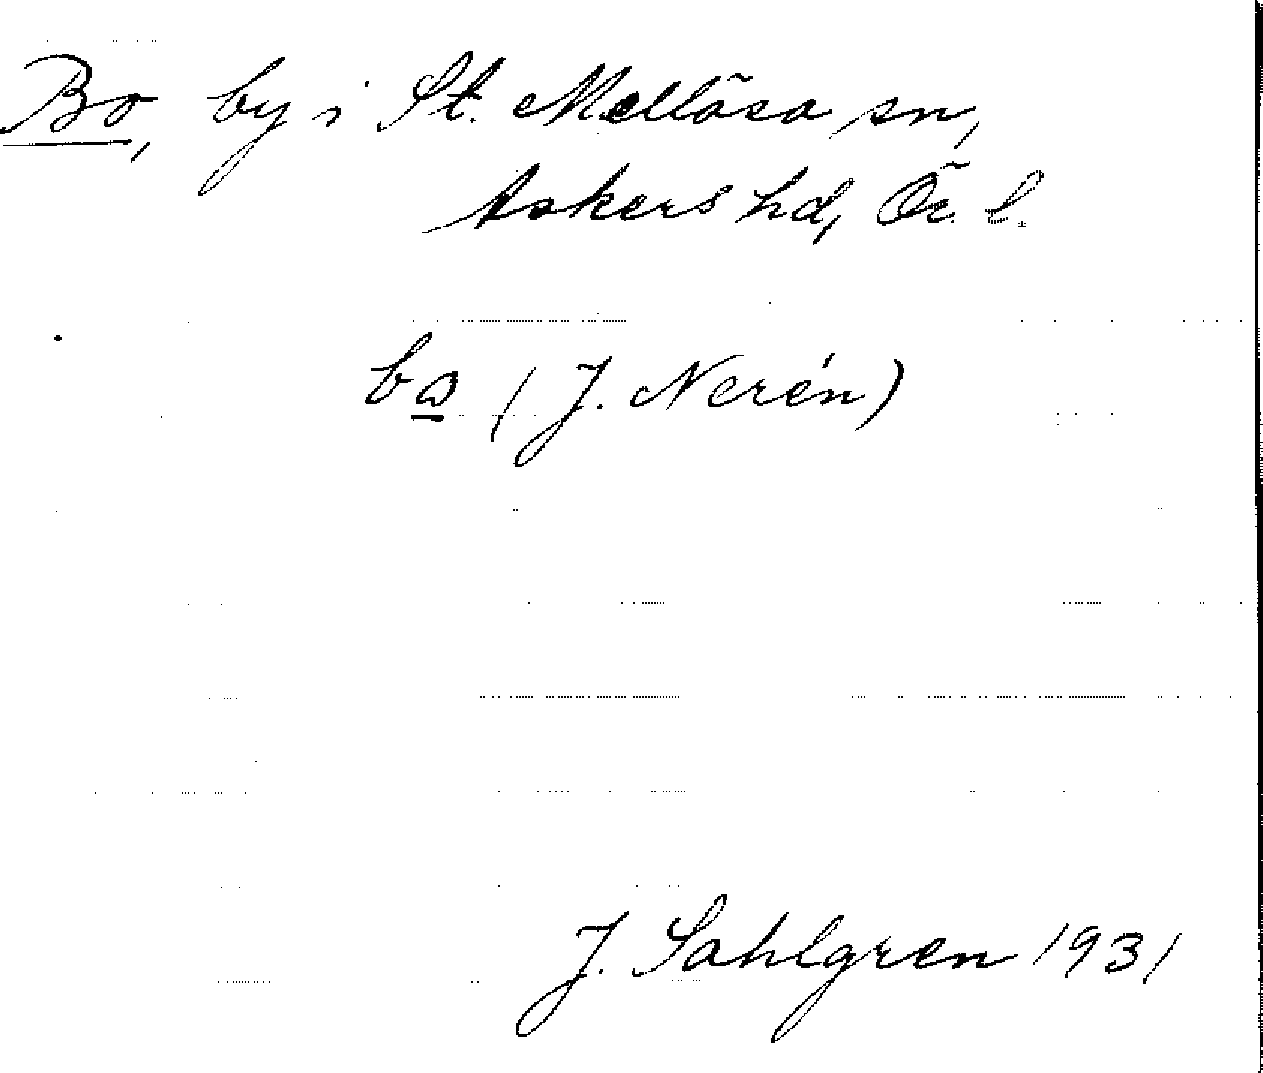 Bo, by i St. Mellösa sn,
Askers hd, Ör. l.
(J. Nerén)
J. Sahlgren 1931